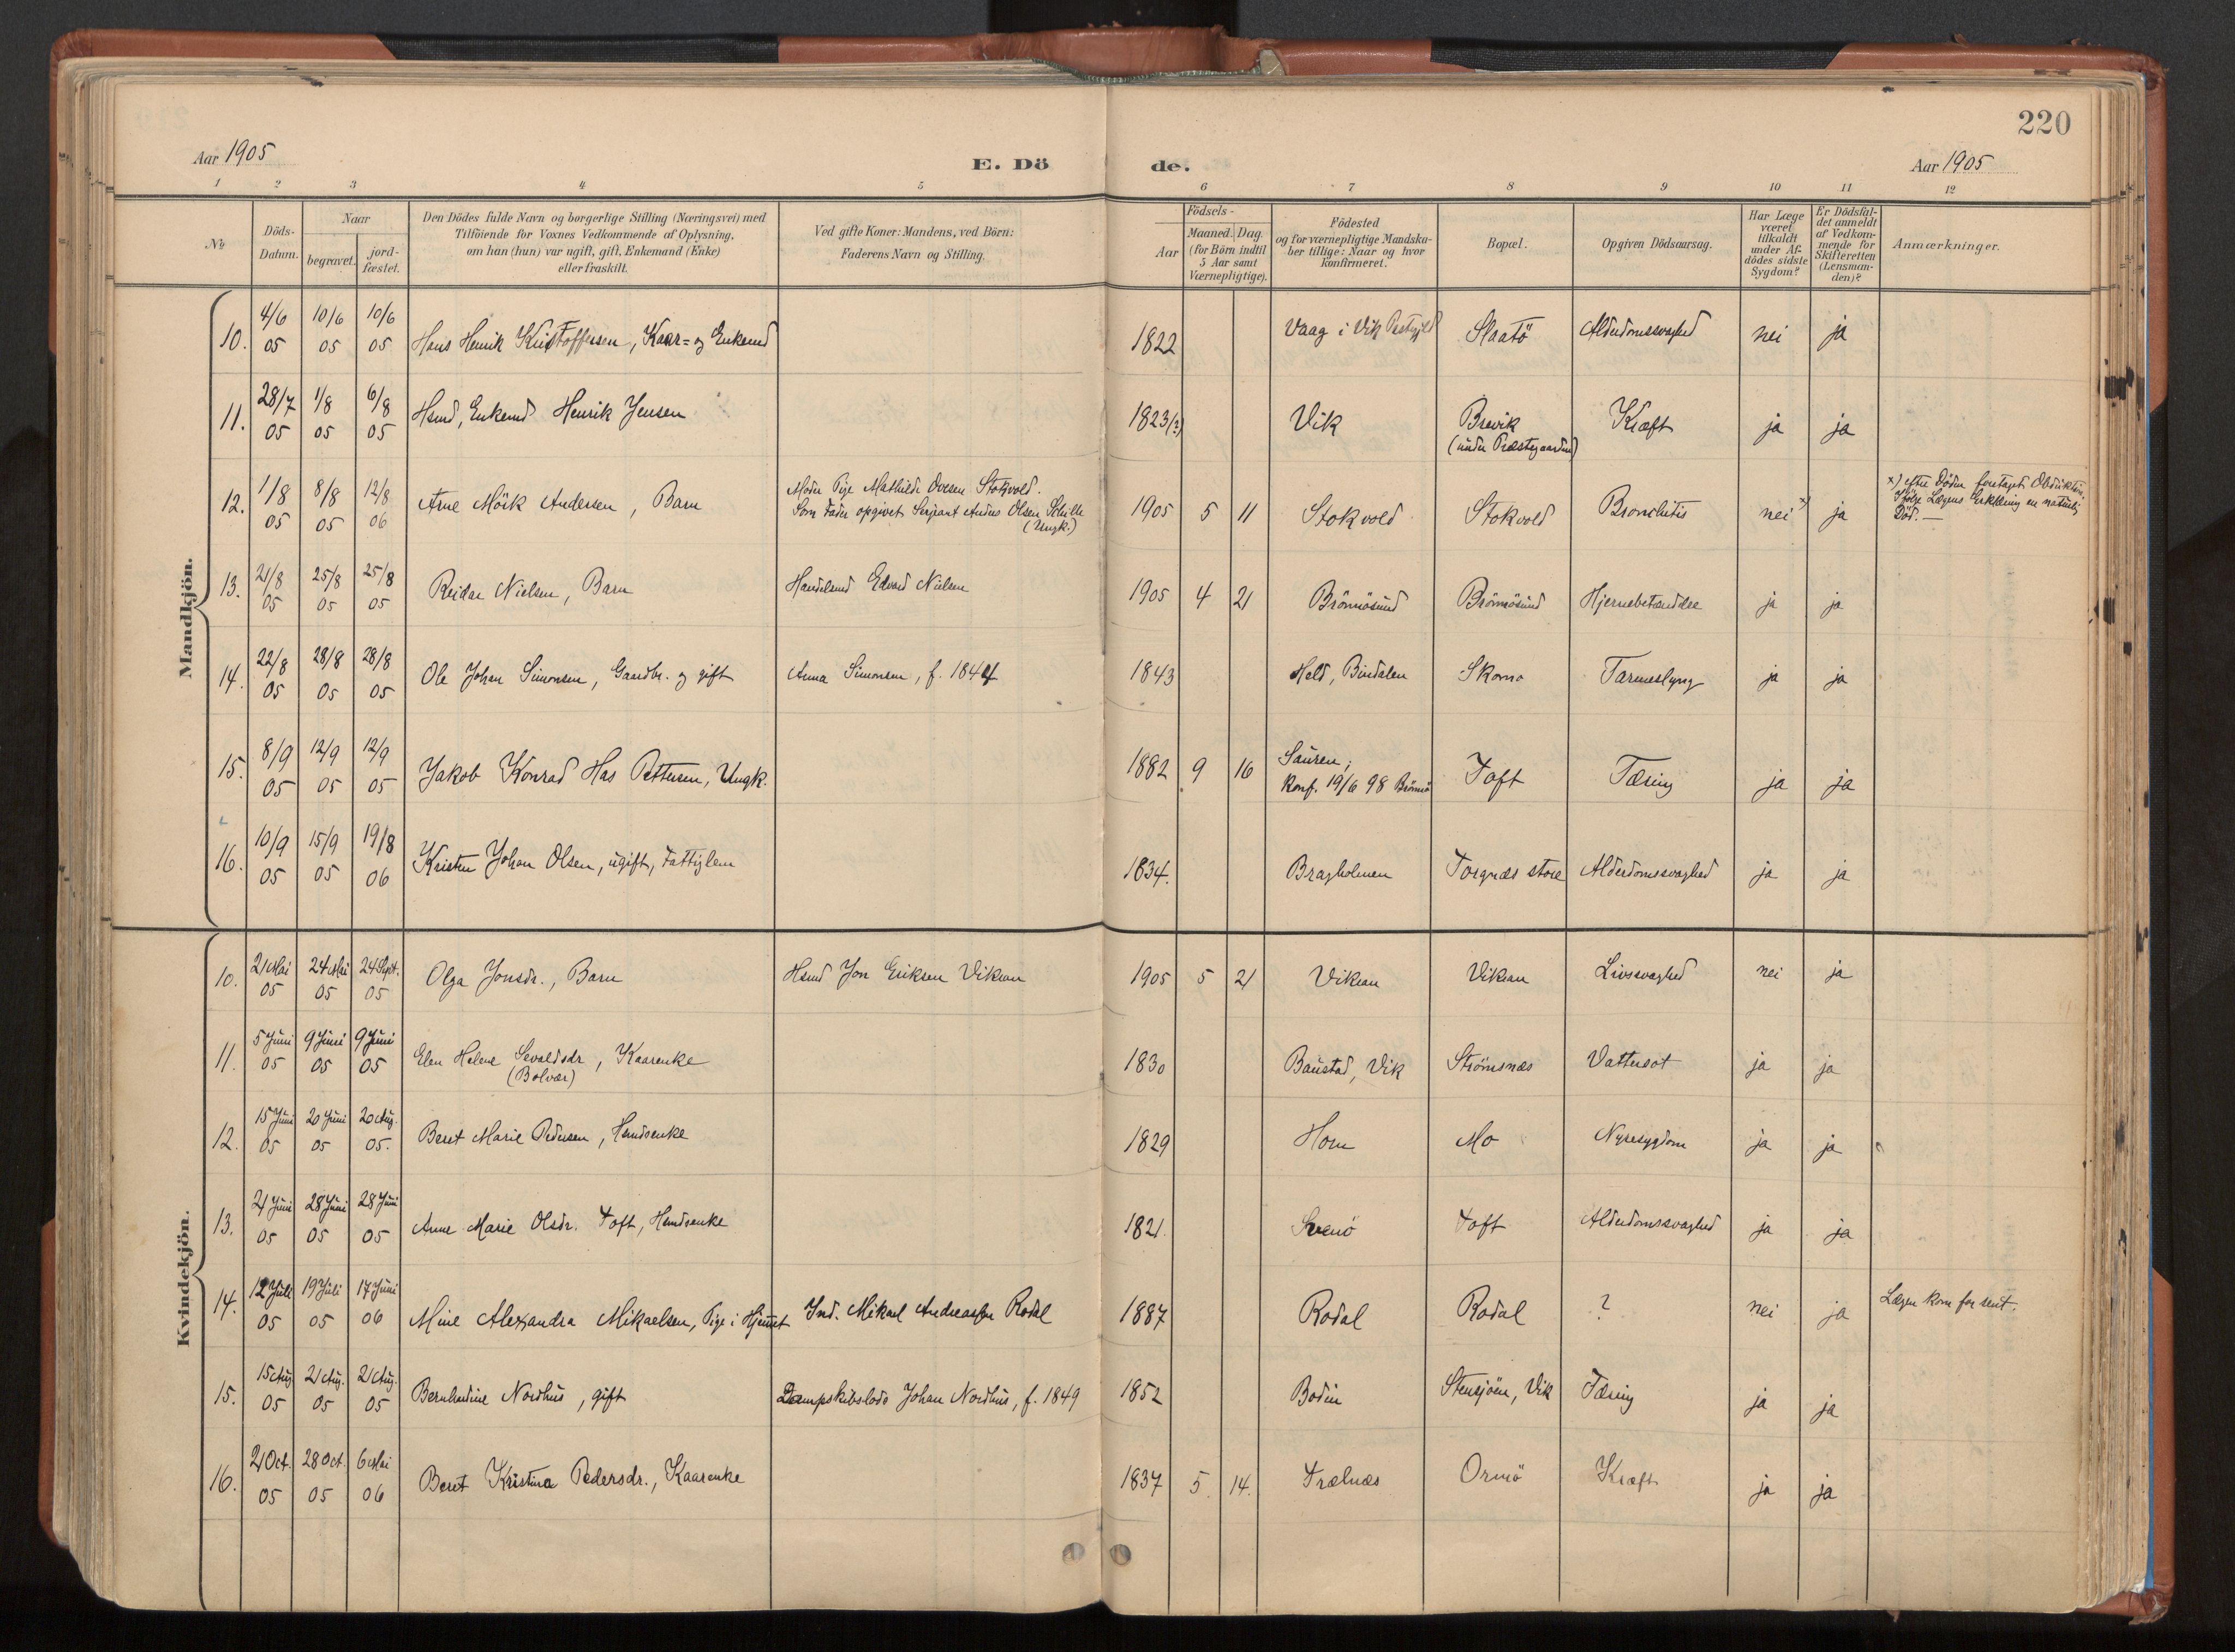 220
Aar 1905
E. Dö
de.
Aar 1905
1 2 3 4 5 6 7 8 9 10 11 12
No
Döds-
Datum.
Naar
begravet.
jord-
fæstet.
Den Dödes fulde Navn og borgerlige Stilling (Næringsvei) med
Tilföiende for Voxnes Vedkommende af Oplysning,
om han (hun) var ugift, gift, Enkemand (Enke)
eller fraskilt.
Ved gifte Koner: Mandens, ved Börn:
Faderens Navn og Stilling.
Födsels-
Aar
Maaned. Dag.
(for Börn indtil
5 Aar samt
Værnepligtige).
Födested
og for værnepligtige Mandska-
ber tillige: Naar og hvor
konfirmeret.
Bopæl.
Opgiven Dödsaarsag.
Har Læge
været
tilkaldt
under Af-
dödes sidste
Sygdom?
Er Dödsfal-
det anmeldt
af Vedkom-
mende for
Skifteretten
(Lensman-
den)?
Anmærkninger.
Mandkjön.
10. 4/6 05 10/6 05 10/6 05 Hans Henrik Kristoffersen, Kaar= og Enkemd 1822 Vaag i Vik Pestgjld Slaatö Alderdomssvaghed nei ja
11. 28/7 05 1/8 05 6/8 05 Hsmd, Enkemd Henrik Jensen 1823(?) Vik Brevik Kræft ja ja
(under Præstegaarden)
12. 1/8 05 8/8 05 12/8 06 Arne Mörk Andersen, Barn Moder Pige Mathilde Ovesen Stokvold.
Som Fader opgivet Serjant Andreas Olsen
(Ungk.)
1905 5 11 Stokvold Stokvold Bronchitis nei x) ja
x) efter Döden foretaget Obduktion.
Ifölge Lægens Erklæring en naturlig
Död. —
13. 21/8 05 25/8 05 25/8 05 Reidar Nielsen, Barn Handelsmd Edvard Nielsen 1905 4 21 Brönnösund Brönnösund Hjernebetændelse ja ja
14. 22/8 05 28/8 05 28/8 05 Ole Johan Simonsen, Gaardbr. og gift Anna Simonsen, f. 1844 1843 Held, Bindalen Skomo Tarmeslyng ja ja
15. 8/9 05 12/9 05 12/9 05 Jakob Konrad Has Pettersen, Ungk. 1882 9 16 Sauren; Toft Tæring ja ja
Konf. 19/6 98 Brönnö
16. 10/9 05 15/9 05 19/8 06 Kristen Johan Olsen, ugift, Fattiglem 1834. Bragholmen Torgnæs store Alderdomssvaghed ja ja
Kvindekjön.
10. 21 Mai 05 24 Mai 05 24 Sept. 05 Olga Jonsdr., Barn Hsmd Jon Eriksen Vikran 1905 5 21 Vikran Vikran Livssvaghed nei ja
11. 5 Juni 05 9 Juni 05 9 Juni 05 Elen Helene Sevaldsdr, Kaarenke 1830 Baustad, Vik Strömsnæs Vattersot ja ja
(Bolvær)
12. 15 Juni 05 20 Juni 05 20 Aug. 05. Beret Marie Pedersen, Hsmdsenke 1829 Horn Mo Nyresygdom ja ja
13. 21 Juni 05 28 Juni 05 28 Juni 05 Anne Marie Olsdr. Toft, Hsmdsenke 1821. Svenö Toft Alderdomssvaghed ja ja
14. 12 Juli 05 19 Juli 05 17 Juni 06 Mine Alexandra Mikaelsen, Pige i Hjemmet Ind. Mikael Andreassen Rodal 1887 Rodal Rodal ? nei ja Lægen kom for sent.
15. 15 Aug 05 21 Aug. 05 21 Aug. 05 Bernhardine Nordhus, gift Dampskibslods Johan Nordhus, f. 1849 1852 Bodin Stensjöen, Vik Tæring ja ja
16. 21 Oct. 05 28 Oct. 05 6 Mai 06 Beret Kristina Pedersdr., Kaarenke 1837 5. 14. Trælnæs Ormö Kræft ja ja